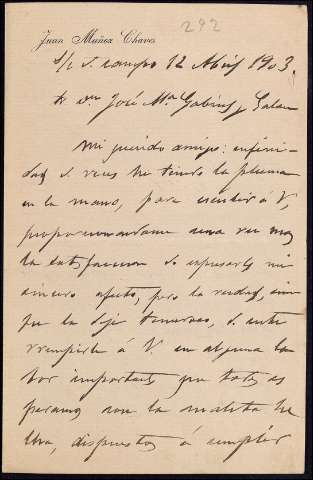 292
Juan Muñoz Chaves
S/c S. campo 12 Abril 1903.
Sr. Dn José Ma Gabriel y Galan
Mi querido amigo: infini-
dad de veces he tenido la pluma
en la mano, para escribir á V,
proporcionandome una vez mas
la satisfaccion de expresarle mi
sincero afecto, pero la verdad, siem
pre la dejé temeroso, de inte
rrumpirle á V. en alguna la
bor importante que todos es
peramos con la maleta he
cha, dispuestos á cumplir